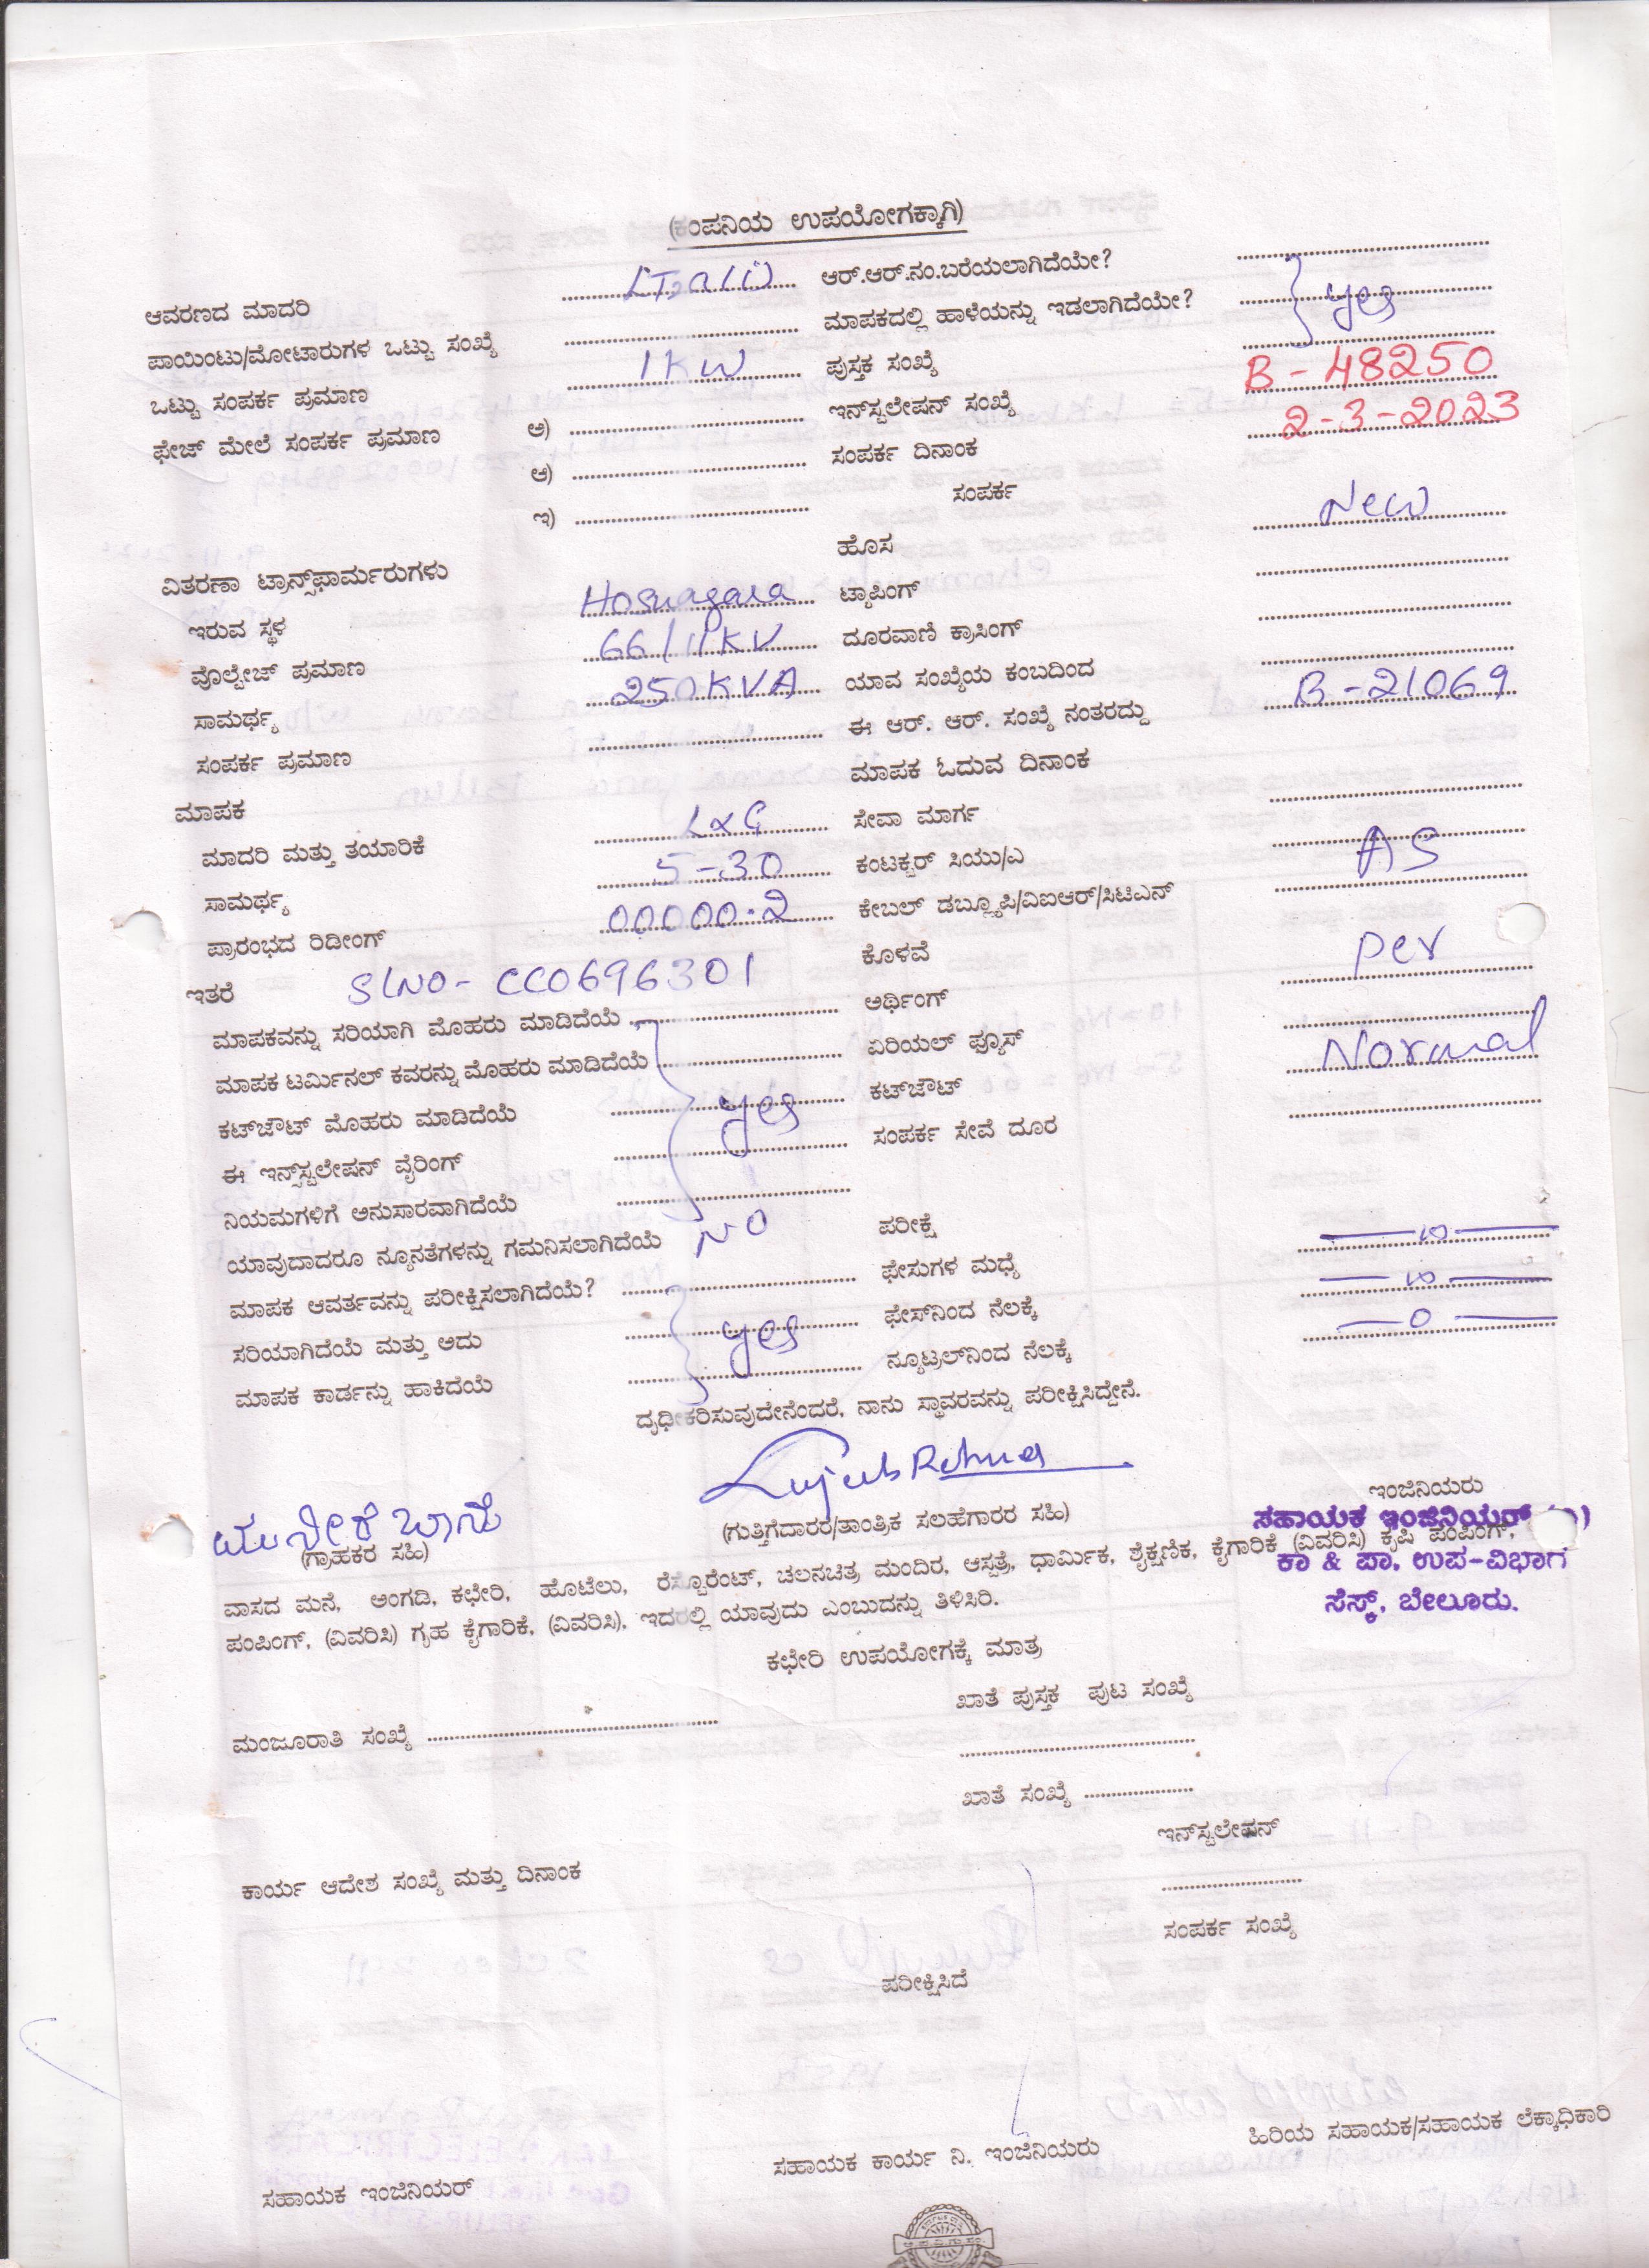 (ಕಂಪನಿಯ ಉಪಯೋಗಕ್ಕಾಗಿ)
ಆವರಣದ ಮಾದರಿ ........ ಆರ್.ಆರ್.ನಂ.ಬರೆಯಲಾಗಿದೆಯೇ? ........
ಪಾಯಿಂಟು/ಮೋಟಾರುಗಳ ಒಟ್ಟು ಸಂಖ್ಯೆ ........ ಮಾಪಕದಲ್ಲಿ ಹಾಳೆಯನ್ನು ಇಡಲಾಗಿದೆಯೇ? yes
ಒಟ್ಟು ಸಂಪರ್ಕ ಪ್ರಮಾಣ 1KW ಪುಸ್ತಕ ಸಂಖ್ಯೆ ........
ಫೇಜ್ ಮೇಲೆ ಸಂಪರ್ಕ ಪ್ರಮಾಣ ಅ) ........ ಇನ್‌ಸ್ಟಲೇಷನ್ ಸಂಖ್ಯೆ B-48250
ಆ) ........ ಸಂಪರ್ಕ ದಿನಾಂಕ 2-3-2023
ಇ) ........ ಸಂಪರ್ಕ
ವಿತರಣಾ ಟ್ರಾನ್ಸ್‌ಫಾರ್ಮರುಗಳು ಹೊಸ New
ಇರುವ ಸ್ಥಳ Hosnagara ಟ್ಯಾಪಿಂಗ್ ........
ವೊಲ್ಟೇಜ್ ಪ್ರಮಾಣ 66/11KV ದೂರವಾಣಿ ಕ್ರಾಸಿಂಗ್ ........
ಸಾಮರ್ಥ್ಯ 250KVA ಯಾವ ಸಂಖ್ಯೆಯ ಕಂಬದಿಂದ ........
ಸಂಪರ್ಕ ಪ್ರಮಾಣ ........ ಈ ಆರ್. ಆರ್. ಸಂಖ್ಯೆ ನಂತರದ್ದು B-21069
ಮಾಪಕ ಮಾಪಕ ಓದುವ ದಿನಾಂಕ
ಮಾದರಿ ಮತ್ತು ತಯಾರಿಕೆ L&G ಸೇವಾ ಮಾರ್ಗ ........
ಸಾಮರ್ಥ್ಯ 5-30 ಕಂಟಕ್ಟರ್ ಸಿಯು/ಎ ........
ಪ್ರಾರಂಭದ ರಿಡೀಂಗ್ 00000.2 ಕೇಬಲ್ ಡಬ್ಲ್ಯೂಪಿ/ವಿಐಆರ್/ಸಿಟಿಎನ್ AS
ಇತರೆ SLNO- CC0696301 ಕೊಳವೆ
ಮಾಪಕವನ್ನು ಸರಿಯಾಗಿ ಮೊಹರು ಮಾಡಿದೆಯೆ ........ ಅರ್ಥಿಂಗ್ per
ಮಾಪಕ ಟರ್ಮಿನಲ್ ಕವರನ್ನು ಮೊಹರು ಮಾಡಿದೆಯೆ ........ ಏರಿಯಲ್ ಫ್ಯೂಸ್ ........
ಕಟ್‌ಔಟ್ ಮೊಹರು ಮಾಡಿದೆಯೆ yes ಕಟ್‌ಔಟ್ Normal
ಈ ಇನ್ಸ್‌ಸ್ಟಲೇಷನ್ ವೈರಿಂಗ್ ........ ಸಂಪರ್ಕ ಸೇವೆ ದೂರ ........
ನಿಯಮಗಳಿಗೆ ಅನುಸಾರವಾಗಿದೆಯೆ ........
ಯಾವುದಾದರೂ ನ್ಯೂನತೆಗಳನ್ನು ಗಮನಿಸಲಾಗಿದೆಯೆ NO ಪರೀಕ್ಷೆ
ಮಾಪಕ ಆವರ್ತವನ್ನು ಪರೀಕ್ಷಿಸಲಾಗಿದೆಯೆ? ........ ಫೇಸುಗಳ ಮಧ್ಯೆ
ಸರಿಯಾಗಿದೆಯೆ ಮತ್ತು ಅದು yes ಫೇಸ್‌ನಿಂದ ನೆಲಕ್ಕೆ
ಮಾಪಕ ಕಾರ್ಡನ್ನು ಹಾಕಿದೆಯೆ ........ ನ್ಯೂಟ್ರಲ್‌ನಿಂದ ನೆಲಕ್ಕೆ —0—
ದೃಢೀಕರಿಸುವುದೇನೆಂದರೆ, ನಾನು ಸ್ಥಾವರವನ್ನು ಪರೀಕ್ಷಿಸಿದ್ದೇನೆ.
ಇಂಜಿನಿಯರು
(ಗ್ರಾಹಕರ ಸಹಿ) (ಗುತ್ತಿಗೆದಾರರ/ತಾಂತ್ರಿಕ ಸಲಹೆಗಾರರ ಸಹಿ) ಸಹಾಯಕ ಇಂಜಿನಿಯರ್
ಕಾ & ಪಾ. ಉಪ-ವಿಭಾಗ
ಸೆಸ್ಕ್, ಬೇಲೂರು.
ವಾಸದ ಮನೆ, ಅಂಗಡಿ, ಕಛೇರಿ, ಹೊಟೆಲು, ರೆಸ್ಟೊರೆಂಟ್, ಚಲನಚಿತ್ರ ಮಂದಿರ, ಆಸ್ಪತ್ರೆ, ಧಾರ್ಮಿಕ, ಶೈಕ್ಷಣಿಕ, ಕೈಗಾರಿಕೆ (ವಿವರಿಸಿ) ಕೃಷಿ ಪಂಪಿಂಗ್,
ಪಂಪಿಂಗ್, (ವಿವರಿಸಿ) ಗೃಹ ಕೈಗಾರಿಕೆ, (ವಿವರಿಸಿ), ಇದರಲ್ಲಿ ಯಾವುದು ಎಂಬುದನ್ನು ತಿಳಿಸಿರಿ.
ಕಛೇರಿ ಉಪಯೋಗಕ್ಕೆ ಮಾತ್ರ
ಖಾತೆ ಪುಸ್ತಕ ಪುಟ ಸಂಖ್ಯೆ
ಮಂಜೂರಾತಿ ಸಂಖ್ಯೆ ........
ಖಾತೆ ಸಂಖ್ಯೆ ........
ಇನ್‌ಸ್ಟಲೇಷನ್
ಕಾರ್ಯ ಆದೇಶ ಸಂಖ್ಯೆ ಮತ್ತು ದಿನಾಂಕ
ಸಂಪರ್ಕ ಸಂಖ್ಯೆ
ಪರೀಕ್ಷಿಸಿದೆ
ಸಹಾಯಕ ಇಂಜಿನಿಯರ್ ಸಹಾಯಕ ಕಾರ್ಯ ನಿ. ಇಂಜಿನಿಯರು ಹಿರಿಯ ಸಹಾಯಕ/ಸಹಾಯಕ ಲೆಕ್ಕಾಧಿಕಾರಿ